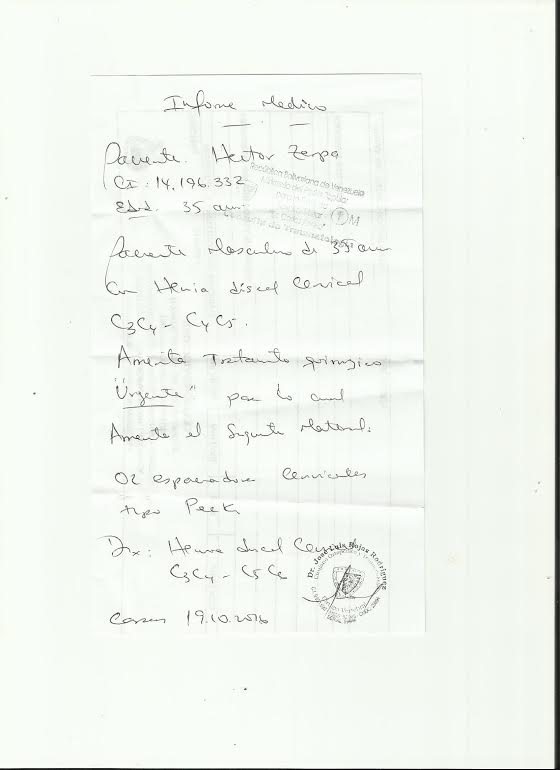 Informe Medico
Paciente. Hector Zerpa
CI: 14.196.332
Edad. 35 años
República Bolivariana de Venezuela
Paciente Masculino de 35 años
Con Hernia discal Cervical
C3C4 - C4C5.
Amerita Tratamiento quirurgico
"Urgente" por lo cual
Amerite el Siguiente Material:
02 espaciadores Cervicales
tipo Peek
Dx: Hernia discal Cervical
C3C4 - C5C6
Dr. José Luis Rojas Rodríguez
Caracas 19.10.2016